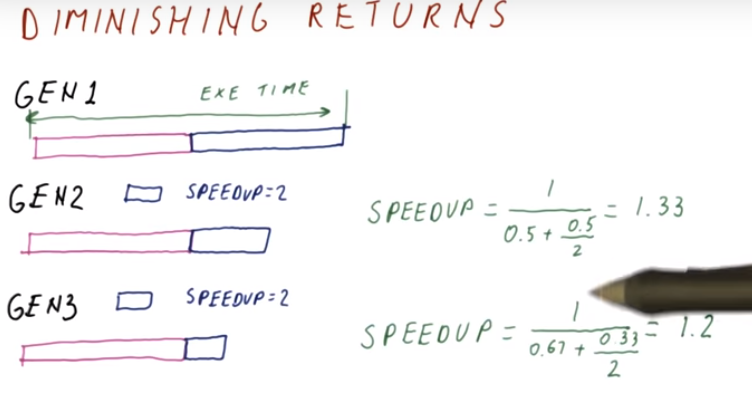 DIMINISHING RETURNS
GEN1
EXE TIME
GEN2
SPEEDUP=2
SPEEDUP = 1 / (0.5 + 0.5/2) = 1.33
GEN3
SPEEDUP=2
SPEEDUP = 1 / (0.67 + 0.33/2) = 1.2